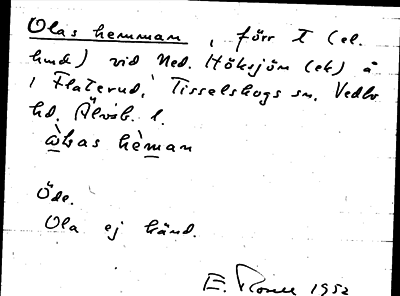 Olas hemman, förr T (el.
lund) vid Ned. Höksjön (ek) å
i Flaterud, Tisselskogs sn, Vedbo
hd, Älvsb. l.
hèman
Öde.
Ola ej känd.
E. 1952